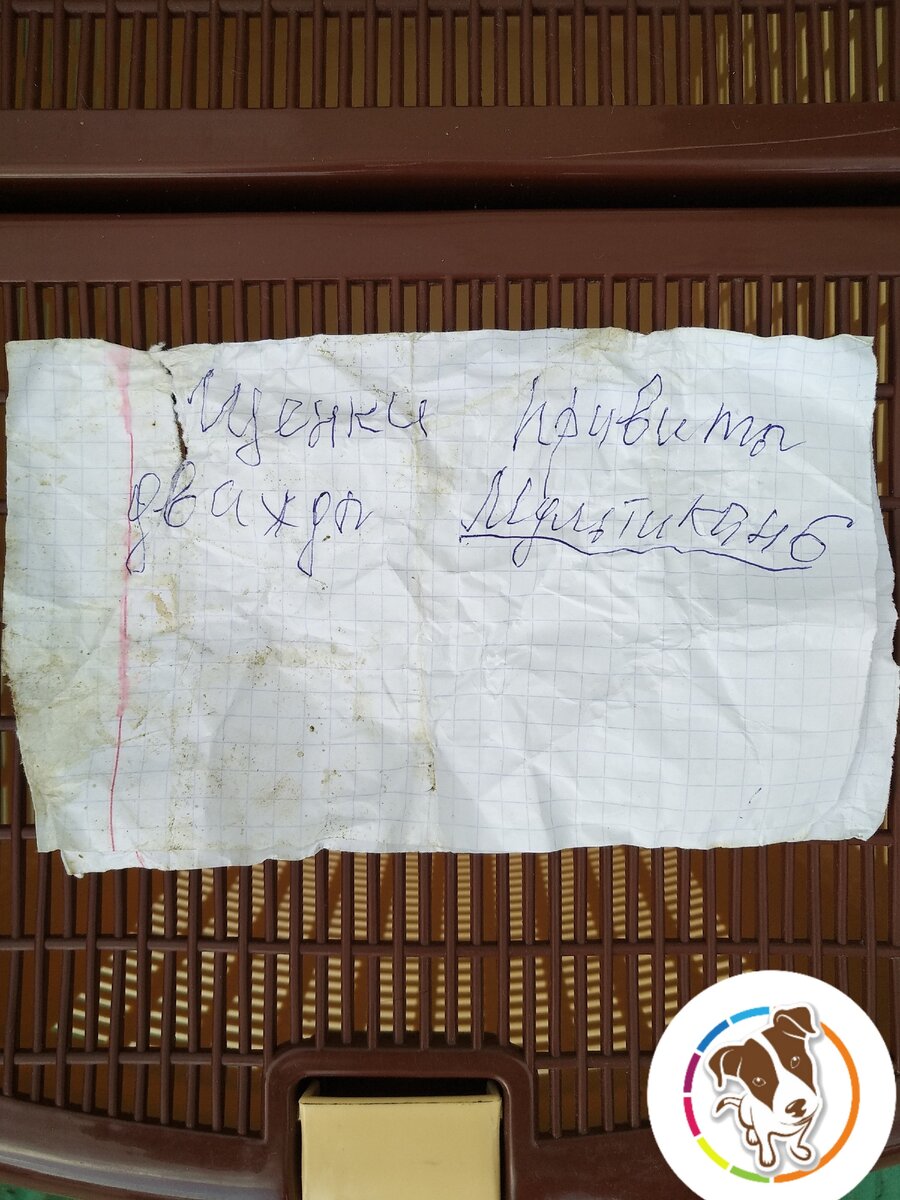 Щенки привиты
дважды Мультикан6